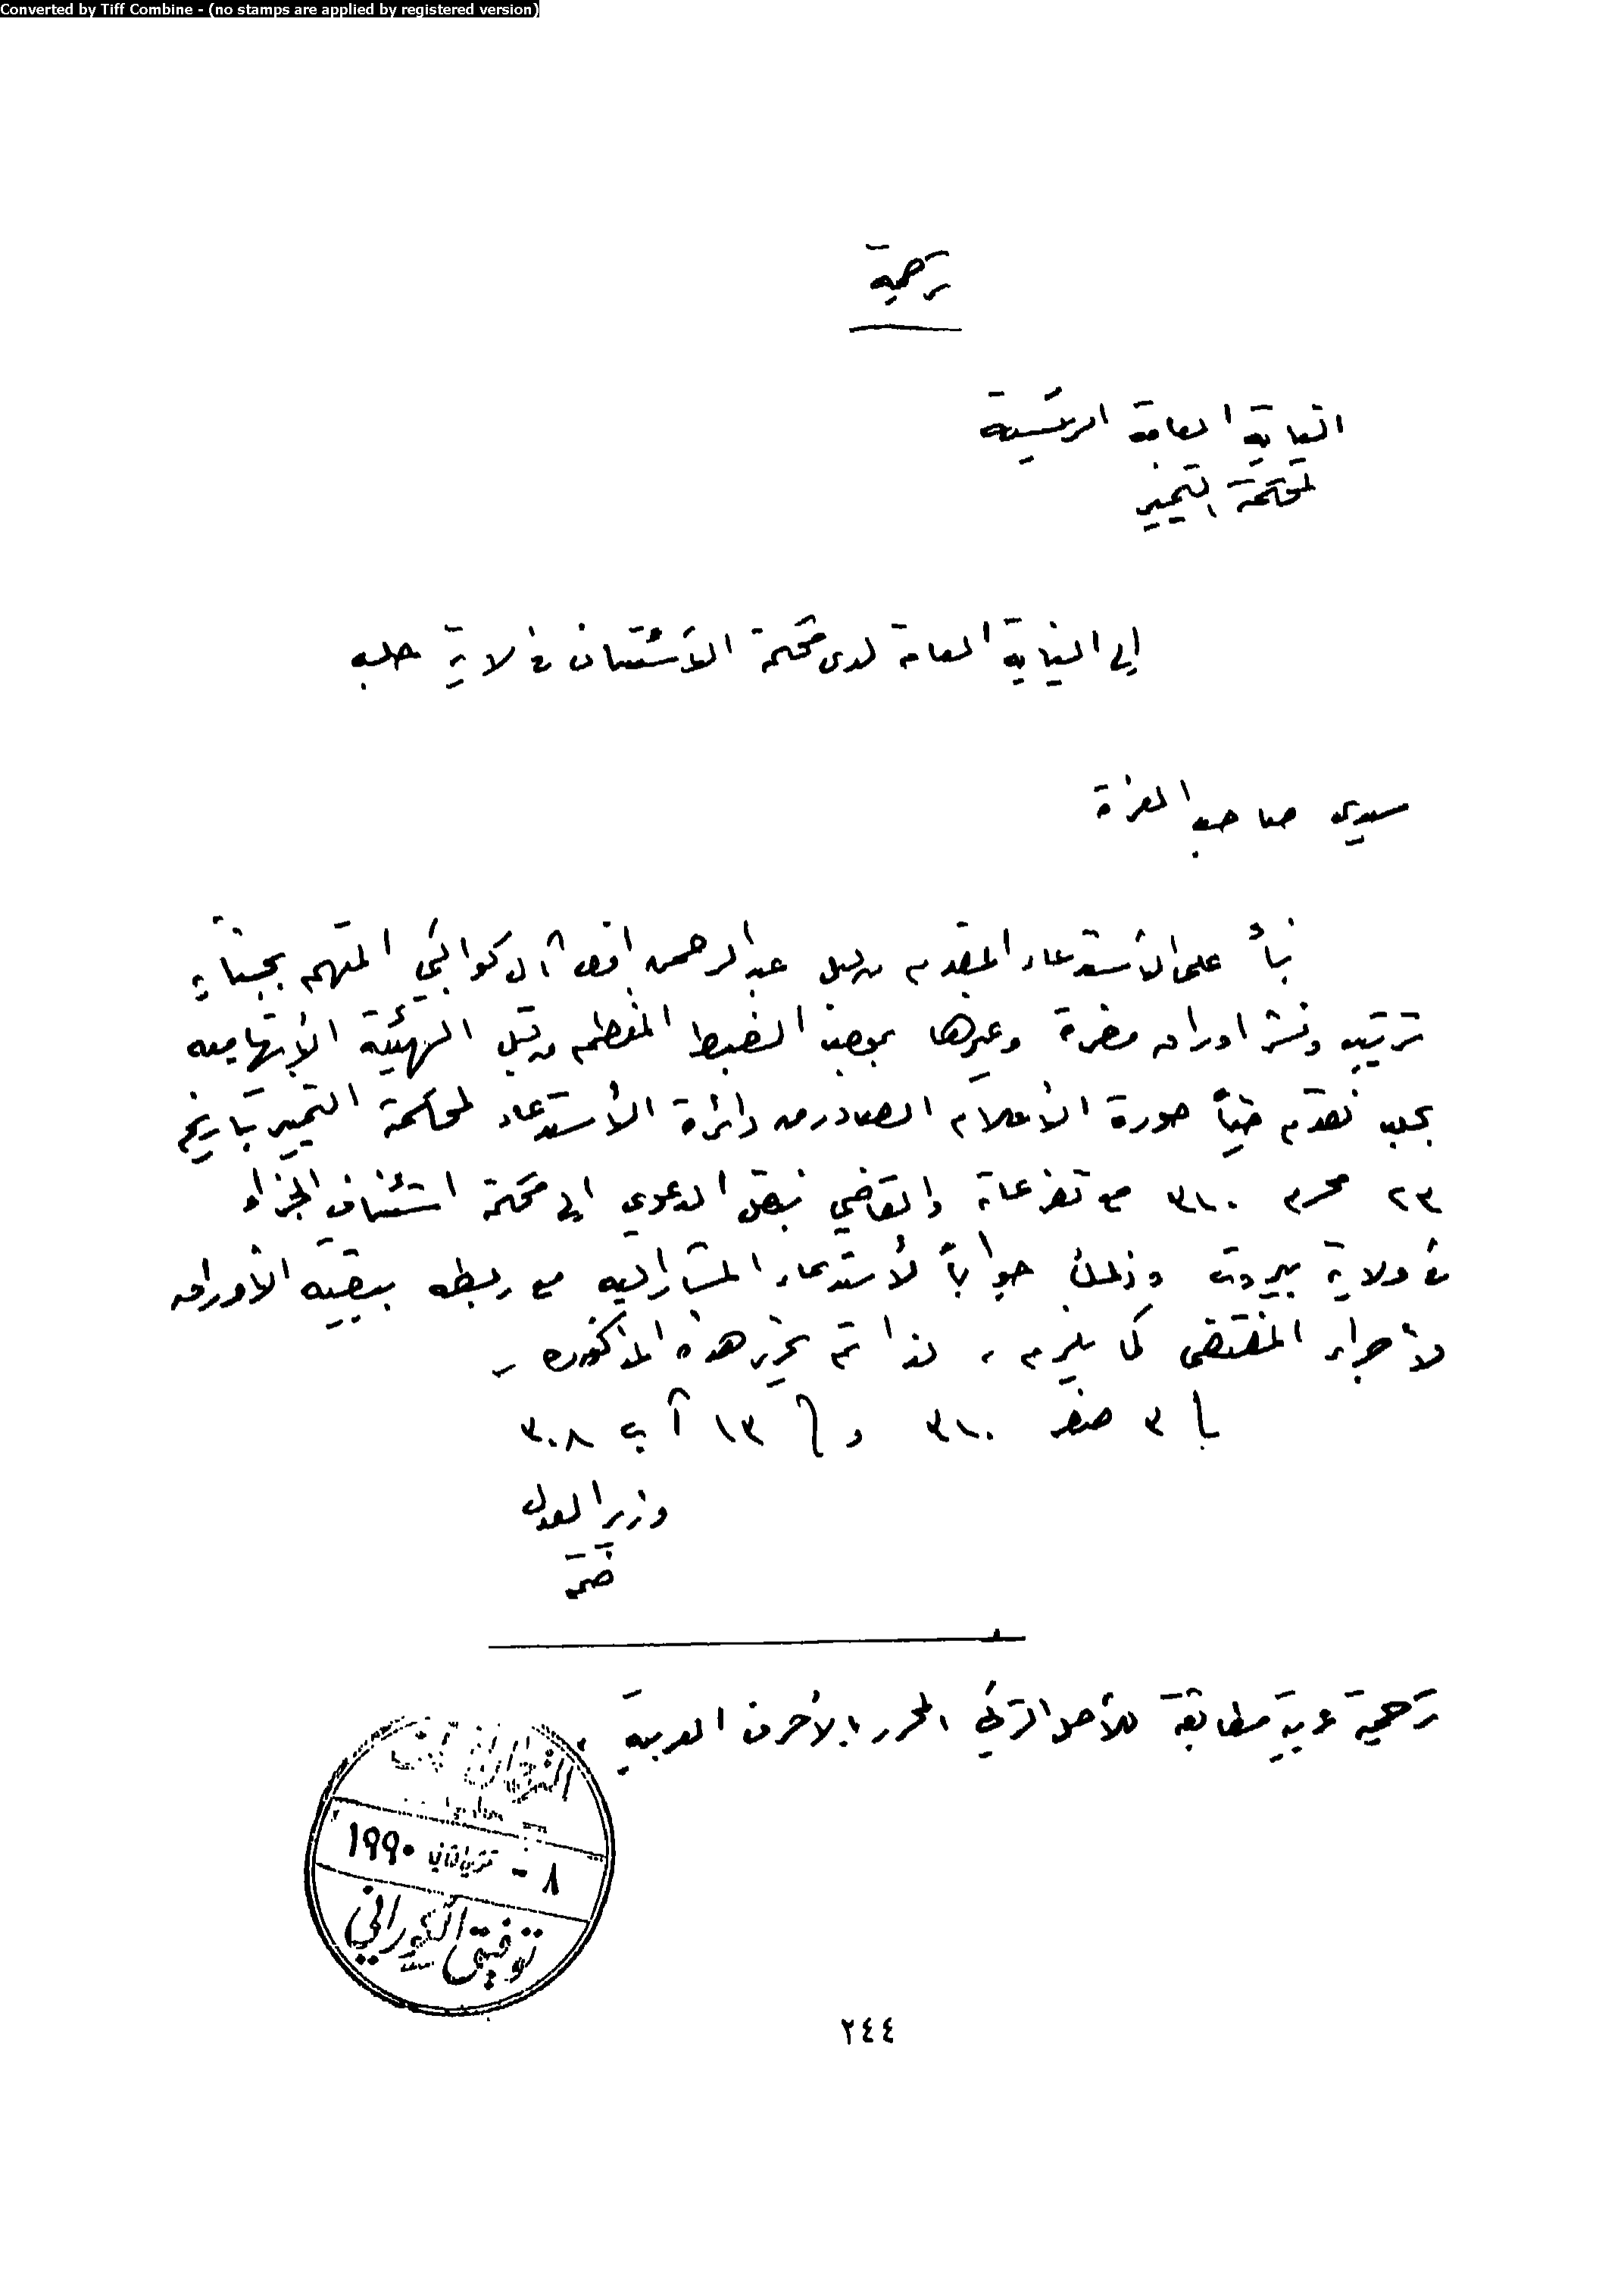 Converted by Tiff Combine - (no stamps are applied by registered version)
ترجمة
النيابة العامة الرئيسية
لمحكمة التمييز
إلى النيابة العامة لدى محكمة الأستئناف في ولاية حلب
سيدي صاحب العزة
بنأ على الأستدعاء المقدم من قبل عبد الرحمن افندي آل كواكبي المتهم بجناية
ترتيب ونشر اوراق مضرة وغيرها بموجب الضبط المنظم من قبل الهيئة الأتهاميه
بحلب نقدم طياً صورة الأعلام الصادر من دائرة الأستدعاء لمحكمة التمييز بتاريخ
٢٣ محرم ٣١٠ مع تفرعاته والقاضي بنقل الدعوى الى محكمة استئناف الجزاء
في ولاية بيروت وذلك جواباً لأستدعاء المشار اليه مع ربطه ببقية الأوراق
لأجراء المقتضى كما يلزم ، لذا تم تحرير هذه المذكوره
٣ صفر ٣١٠ و ١٣ آب ٣٠٨
وزير العدل
ختم
ترجمة عربية مطابقة للأصل التركي المحرر بالأحرف العربية
الترجمان
٨ - تشرين الثاني ١٩٩٠
توفيق الكوراني
٢٤٤